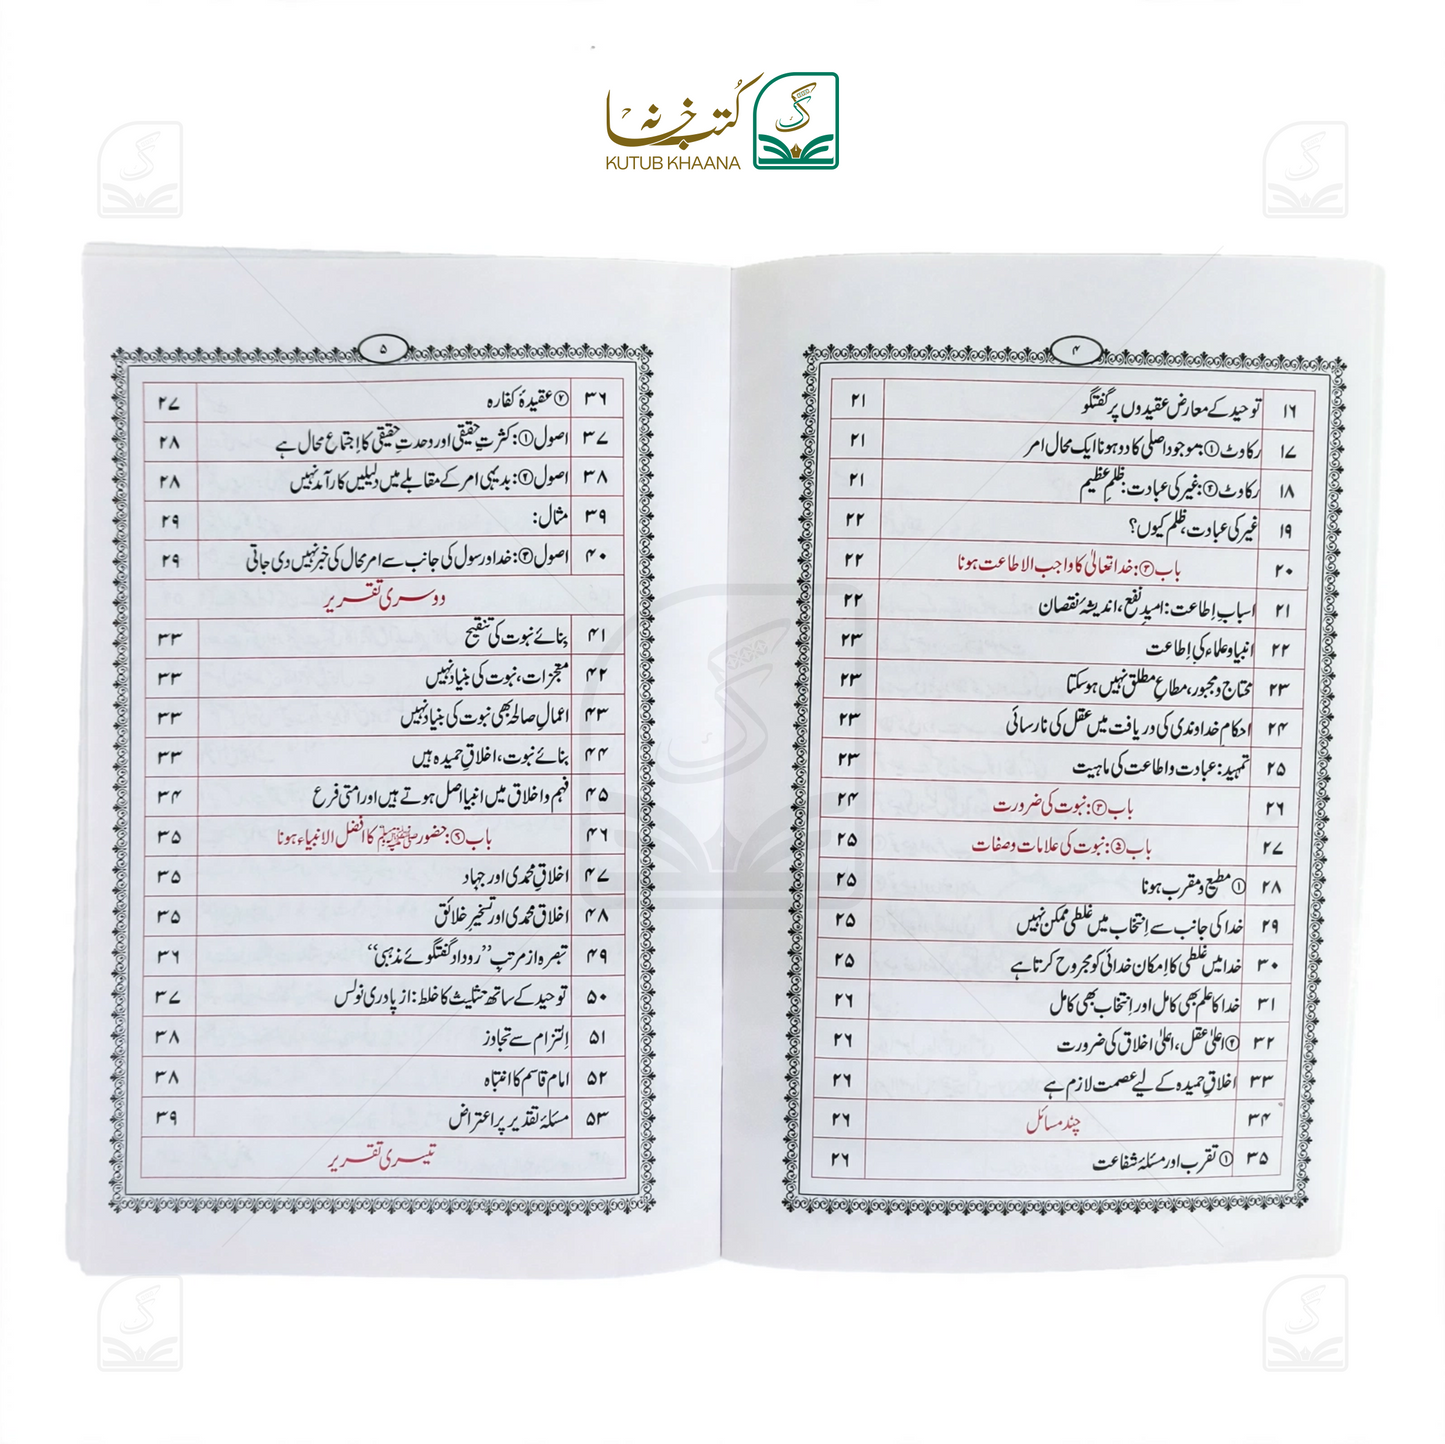 کتب خانہ
KUTUB KHAANA
۴
۱۶ توحید کے معارض عقیدوں پر گفتگو ۲۱
۱۷ رکاوٹ①: موجود اصلی کا دو ہونا ایک محال امر ۲۱
۱۸ رکاوٹ②: غیر کی عبادت: ظلمِ عظیم ۲۱
۱۹ غیر کی عبادت، ظلم کیوں؟ ۲۲
۲۰ باب③: خدا تعالیٰ کا واجب الاطاعت ہونا ۲۲
۲۱ اسبابِ اِطاعت: امیدِ نفع، اندیشۂ نقصان ۲۲
۲۲ انبیا و علماء کی اِطاعت ۲۳
۲۳ محتاج و مجبور، مطاعِ مطلق نہیں ہو سکتا ۲۳
۲۴ احکام خداوندی کی دریافت میں عقل کی نارسائی ۲۳
۲۵ تمہید: عبادت و اطاعت کی ماہیت ۲۳
۲۶ باب④: نبوت کی ضرورت ۲۴
۲۷ باب⑤: نبوت کی علامات و صفات ۲۵
۲۸ ① مطیع و مقرب ہونا ۲۵
۲۹ خدا کی جانب سے اِنتخاب میں غلطی ممکن نہیں ۲۵
۳۰ خدا میں غلطی کا اِمکان خدائی کو مجروح کرتا ہے ۲۵
۳۱ خدا کا علم بھی کامل اور اِنتخاب بھی کامل ۲۶
۳۲ ② اعلیٰ عقل، اعلیٰ اخلاق کی ضرورت ۲۶
۳۳ اخلاقِ حمیدہ کے لیے عصمت لازم ہے ۲۶
۳۴ چند مسائل ۲۶
۳۵ ① تقرب اور مسئلۂ شفاعت ۲۶
۵
۳۶ ② عقیدۂ کفارہ ۲۷
۳۷ اصول①: کثرتِ حقیقی اور وحدتِ حقیقی کا اِجتماع محال ہے ۲۸
۳۸ اصول②: بدیہی امر کے مقابلے میں دلیلیں کارآمد نہیں ۲۸
۳۹ مثال: ۲۹
۴۰ اصول③: خدا و رسول کی جانب سے امر محال کی خبر نہیں دی جاتی ۲۹
دوسری تقریر
۴۱ بِنائے نبوت کی تنقیح ۳۳
۴۲ معجزات، نبوت کی بنیاد نہیں ۳۳
۴۳ اعمالِ صالحہ بھی نبوت کی بنیاد نہیں ۳۳
۴۴ بنائے نبوت، اخلاقِ حمیدہ ہیں ۳۳
۴۵ فہم و اخلاق میں انبیا اصل ہوتے ہیں اور امتی فرع ۳۴
۴۶ باب⑥: حضور ﷺ کا افضل الانبیاء ہونا ۳۵
۴۷ اخلاقِ محمدی اور جہاد ۳۵
۴۸ اخلاق محمدی اور تسخیرِ خلائق ۳۵
۴۹ تبصرہ از مرتب ”رودادِ گفتگوئے مذہبی“ ۳۶
۵۰ توحید کے ساتھ تثلیث کا خلط: از پادری نولس ۳۷
۵۱ اِلتزام سے تجاوز ۳۸
۵۲ امام قاسم کا انتباہ ۳۸
۵۳ مسئلۂ تقدیر پر اعتراض ۳۹
تیسری تقریر